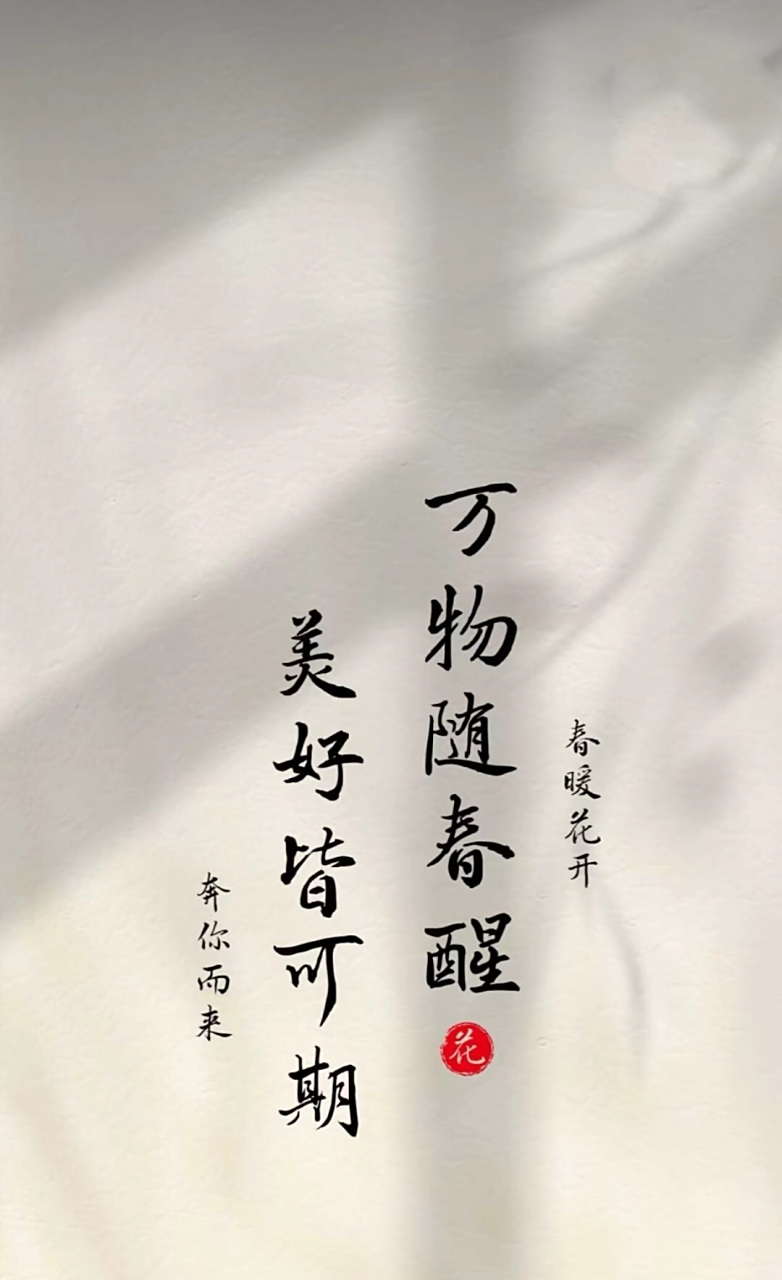 春暖花开
万物随春醒
花
美好皆可期
奔你而来